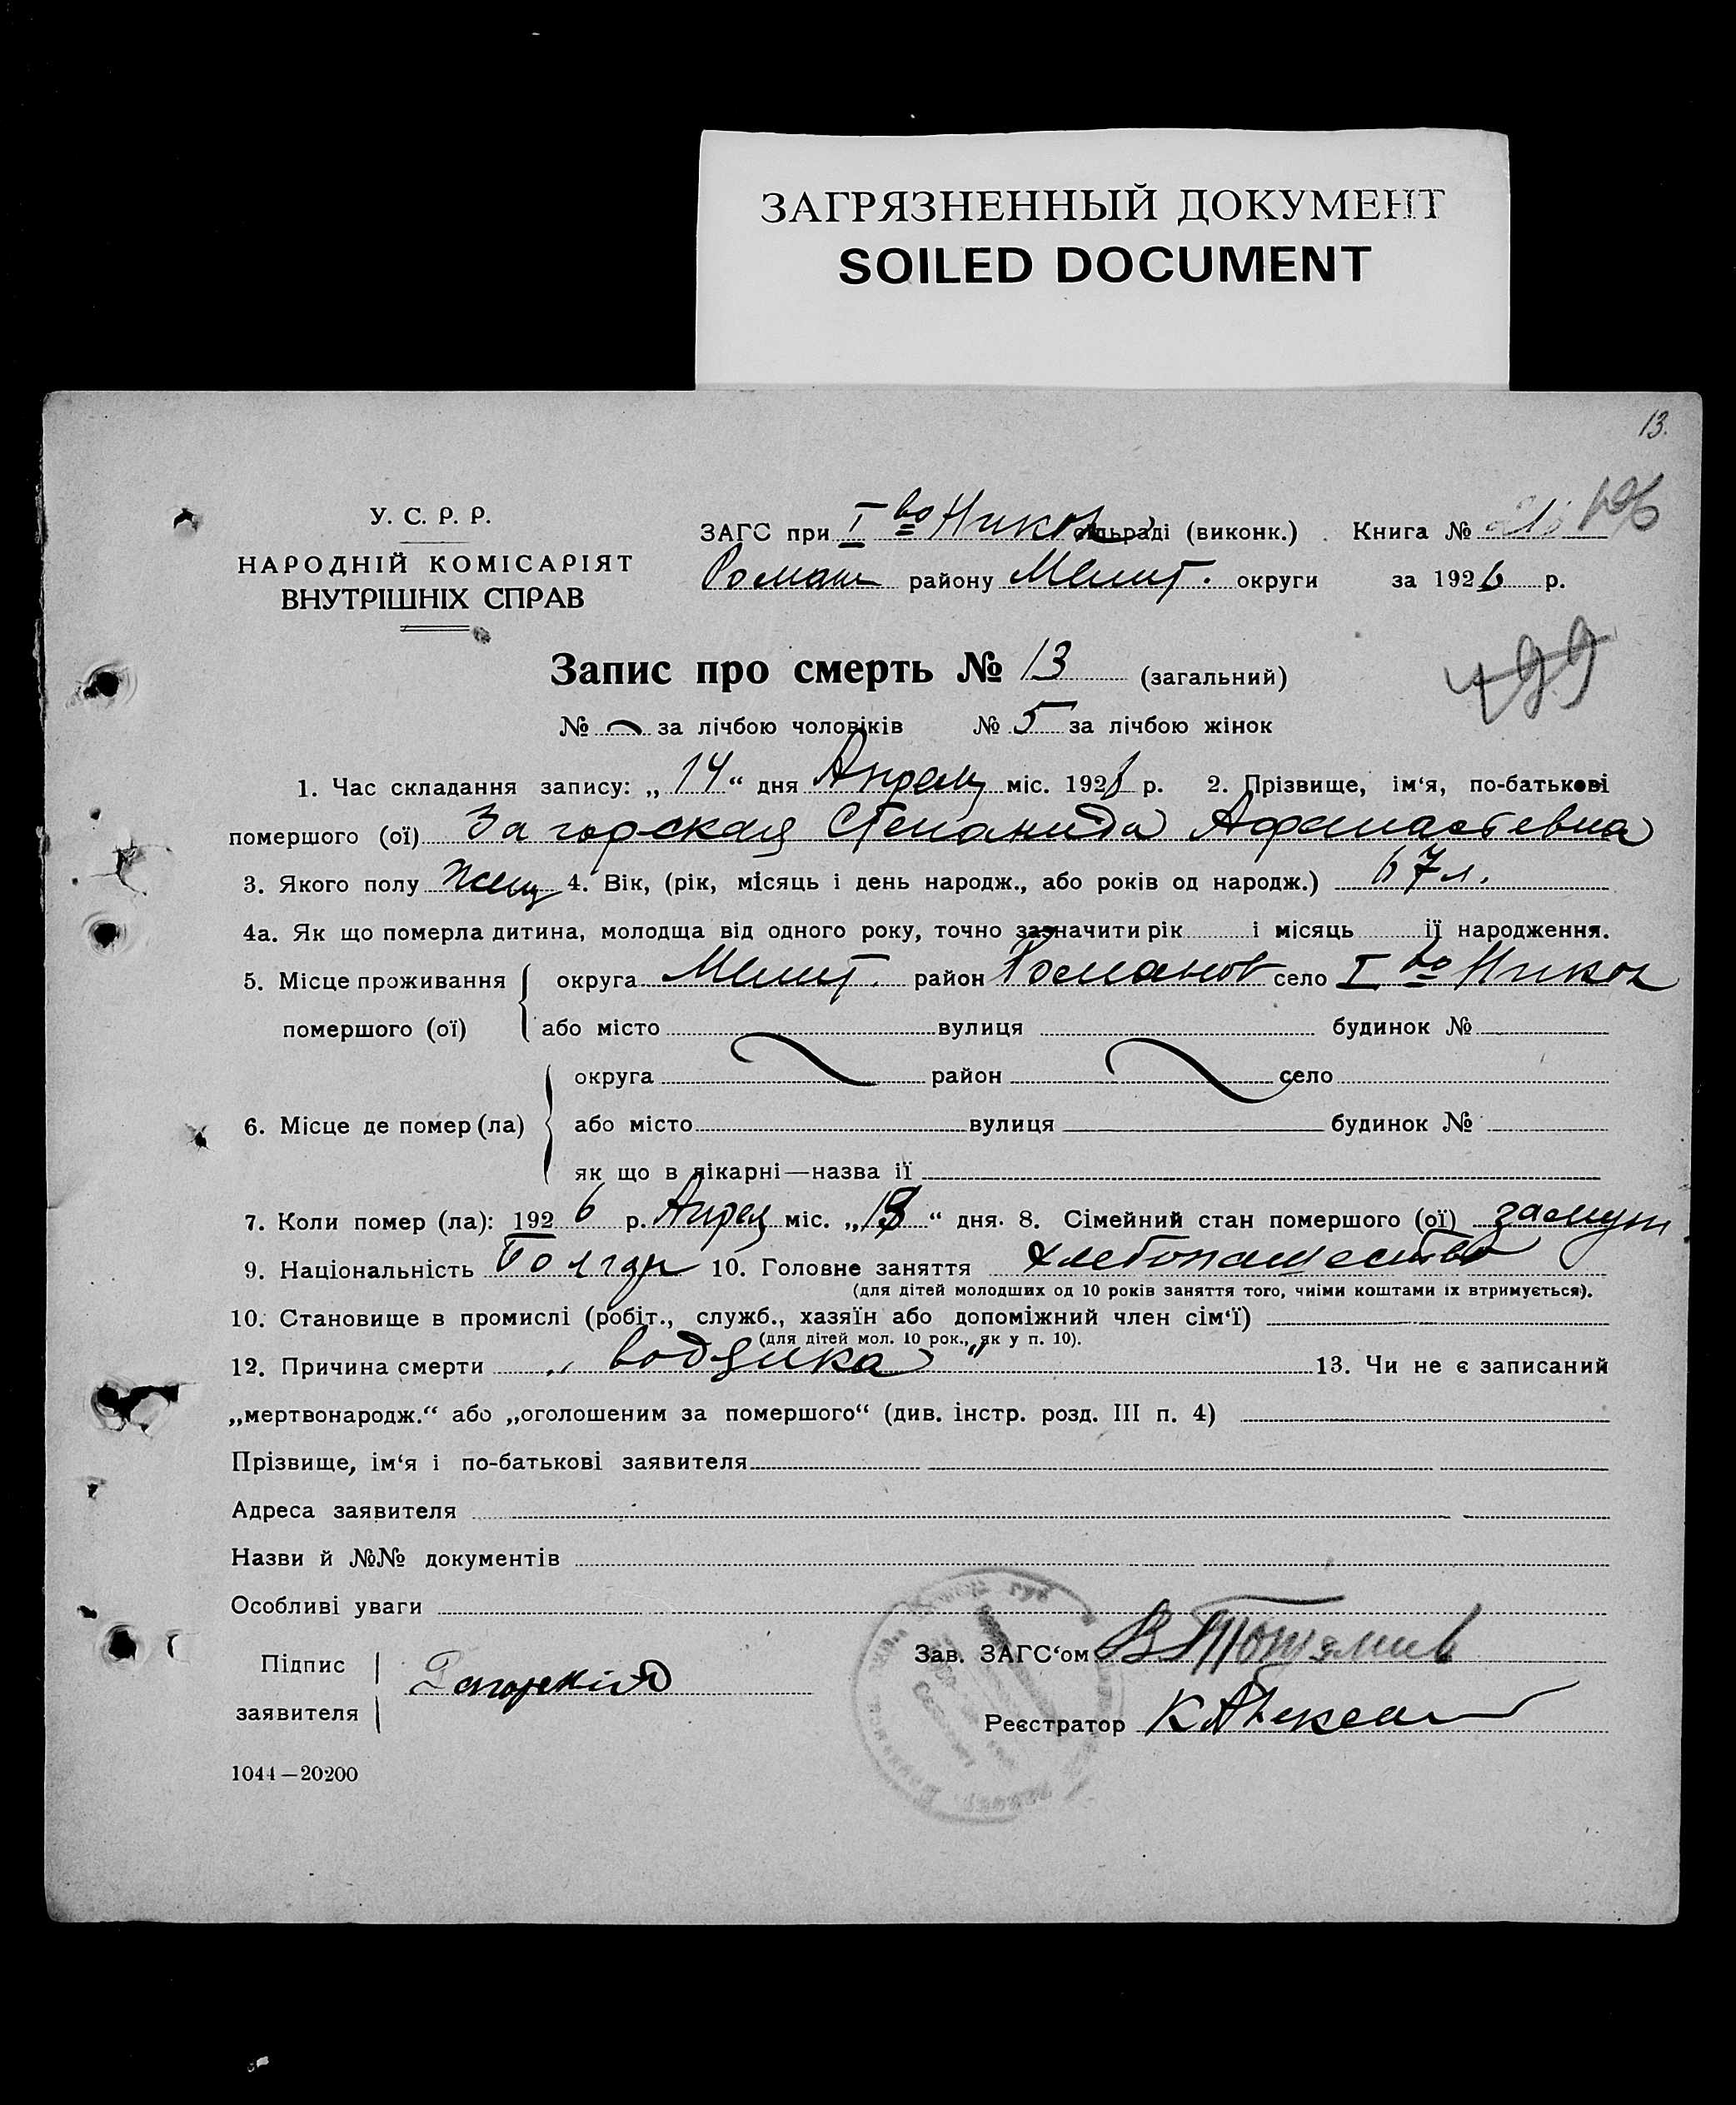 ЗАГРЯЗНЕННЫЙ ДОКУМЕНТ
SOILED DOCUMENT
13.
У. С. Р. Р.
НАРОДНІЙ КОМІСАРІЯТ
ВНУТРІШНІХ СПРАВ
ЗАГС при I во Никол сільраді (виконк.) Книга №
Роман району Мелит. округи за 1926 р.
Запис про смерть № 13 (загальний)
499
№ за лічбою чоловіків № 5 за лічбою жінок
1. Час складання запису: „14“ дня Апреля міс. 1926 р. 2. Прізвище, ім‘я, по-батькові
помершого (ої) Загорская Степанида Афанасьевна
3. Якого полу Жен 4. Вік, (рік, місяць і день народж., або років од народж.) 67 л.
4а. Як що померла дитина, молодща від одного року, точно зазначити рік і місяць її народження.
5. Місце проживання помершого (ої) округа Мелит. район Романов село I во Никол
або місто вулиця будинок №
6. Місце де помер (ла) округа район село
або місто вулиця будинок №
як що в лікарні—назва її
7. Коли помер (ла): 1926 р. Апрел міс. „13“ дня. 8. Сімейний стан помершого (ої) замуж
9. Національність Болгар 10. Головне заняття хлебопашество
(для дітей молодших од 10 років заняття того, чиїми коштами їх втримується).
10. Становище в промислі (робіт., служб., хазяїн або допоміжний член сім‘ї)
(для дітей мол. 10 рок., як у п. 10).
12. Причина смерти „водянка“ 13. Чи не є записаний
„мертвонародж.“ або „оголошеним за помершого“ (див. інстр. розд. III п. 4)
Прізвище, ім‘я і по-батькові заявителя
Адреса заявителя
Назви й №№ документів
Особливі уваги
Підпис заявителя Загорский
Зав. ЗАГС‘ом
Реєстратор
1044—20200